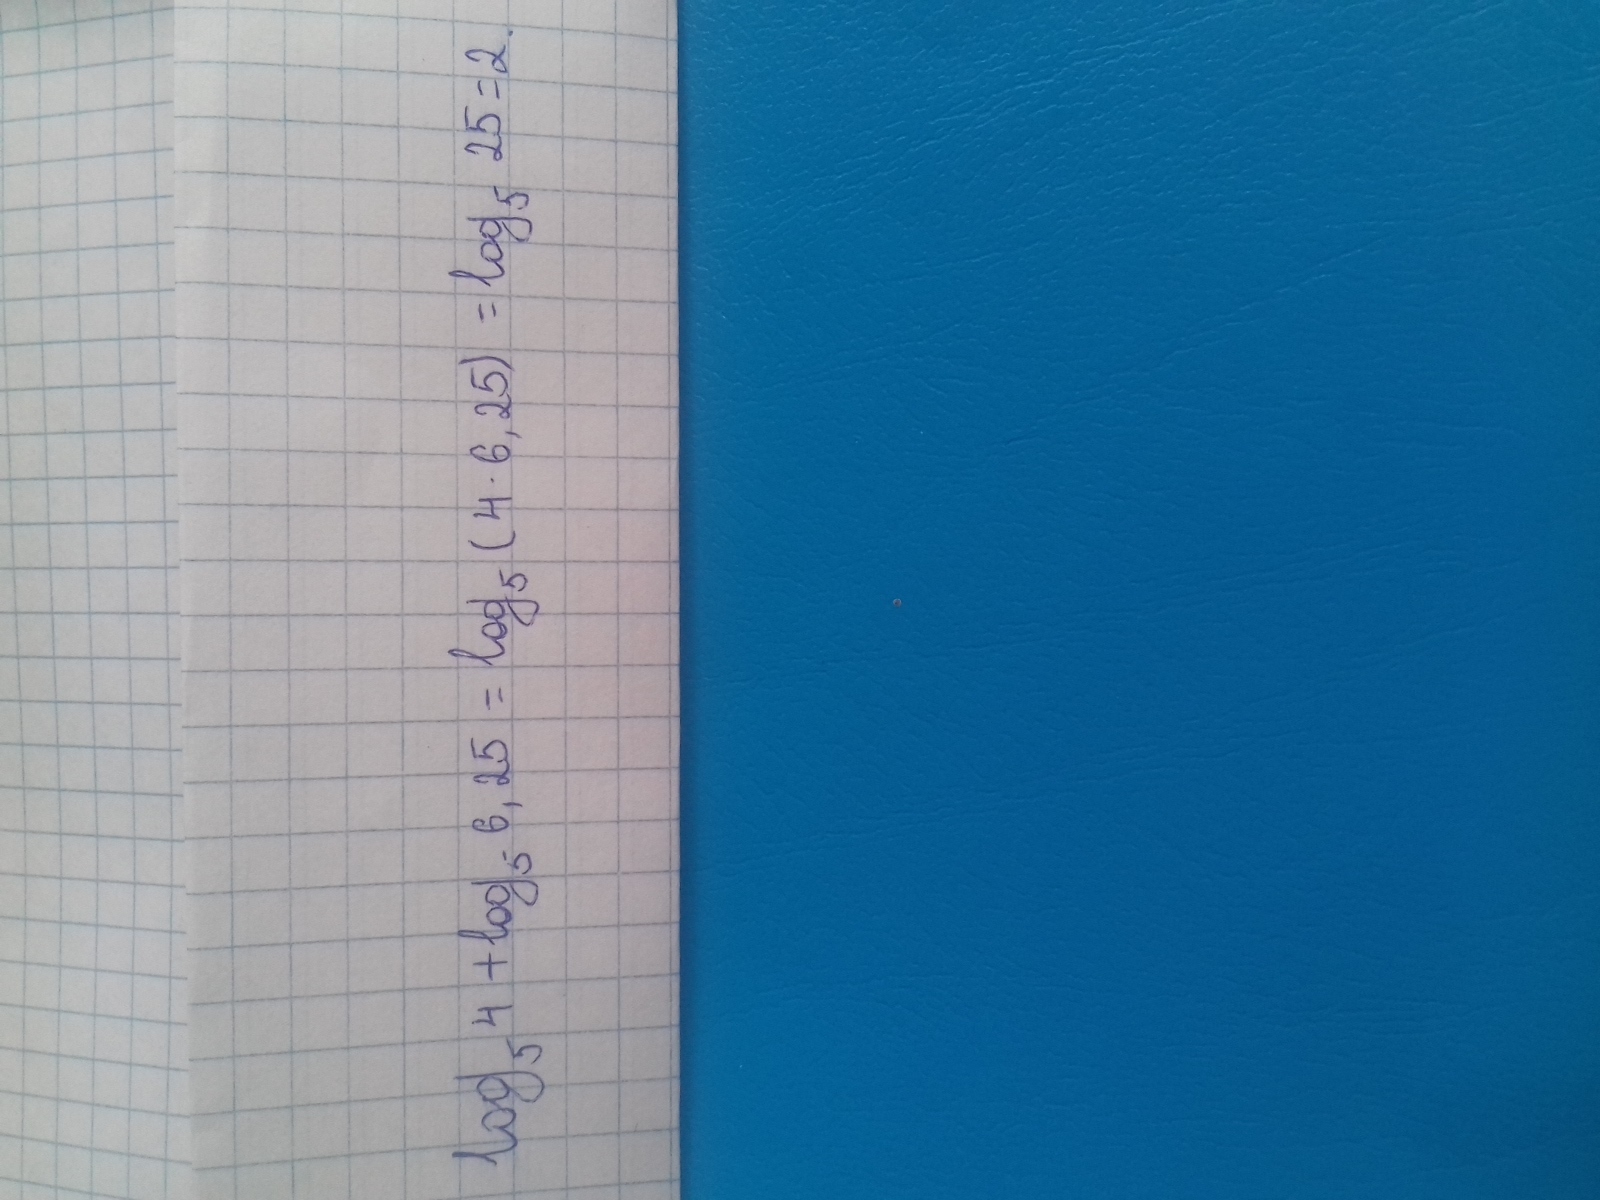 log₅ 4 + log₅ 6,25 = log₅ (4 · 6,25) = log₅ 25 = 2.